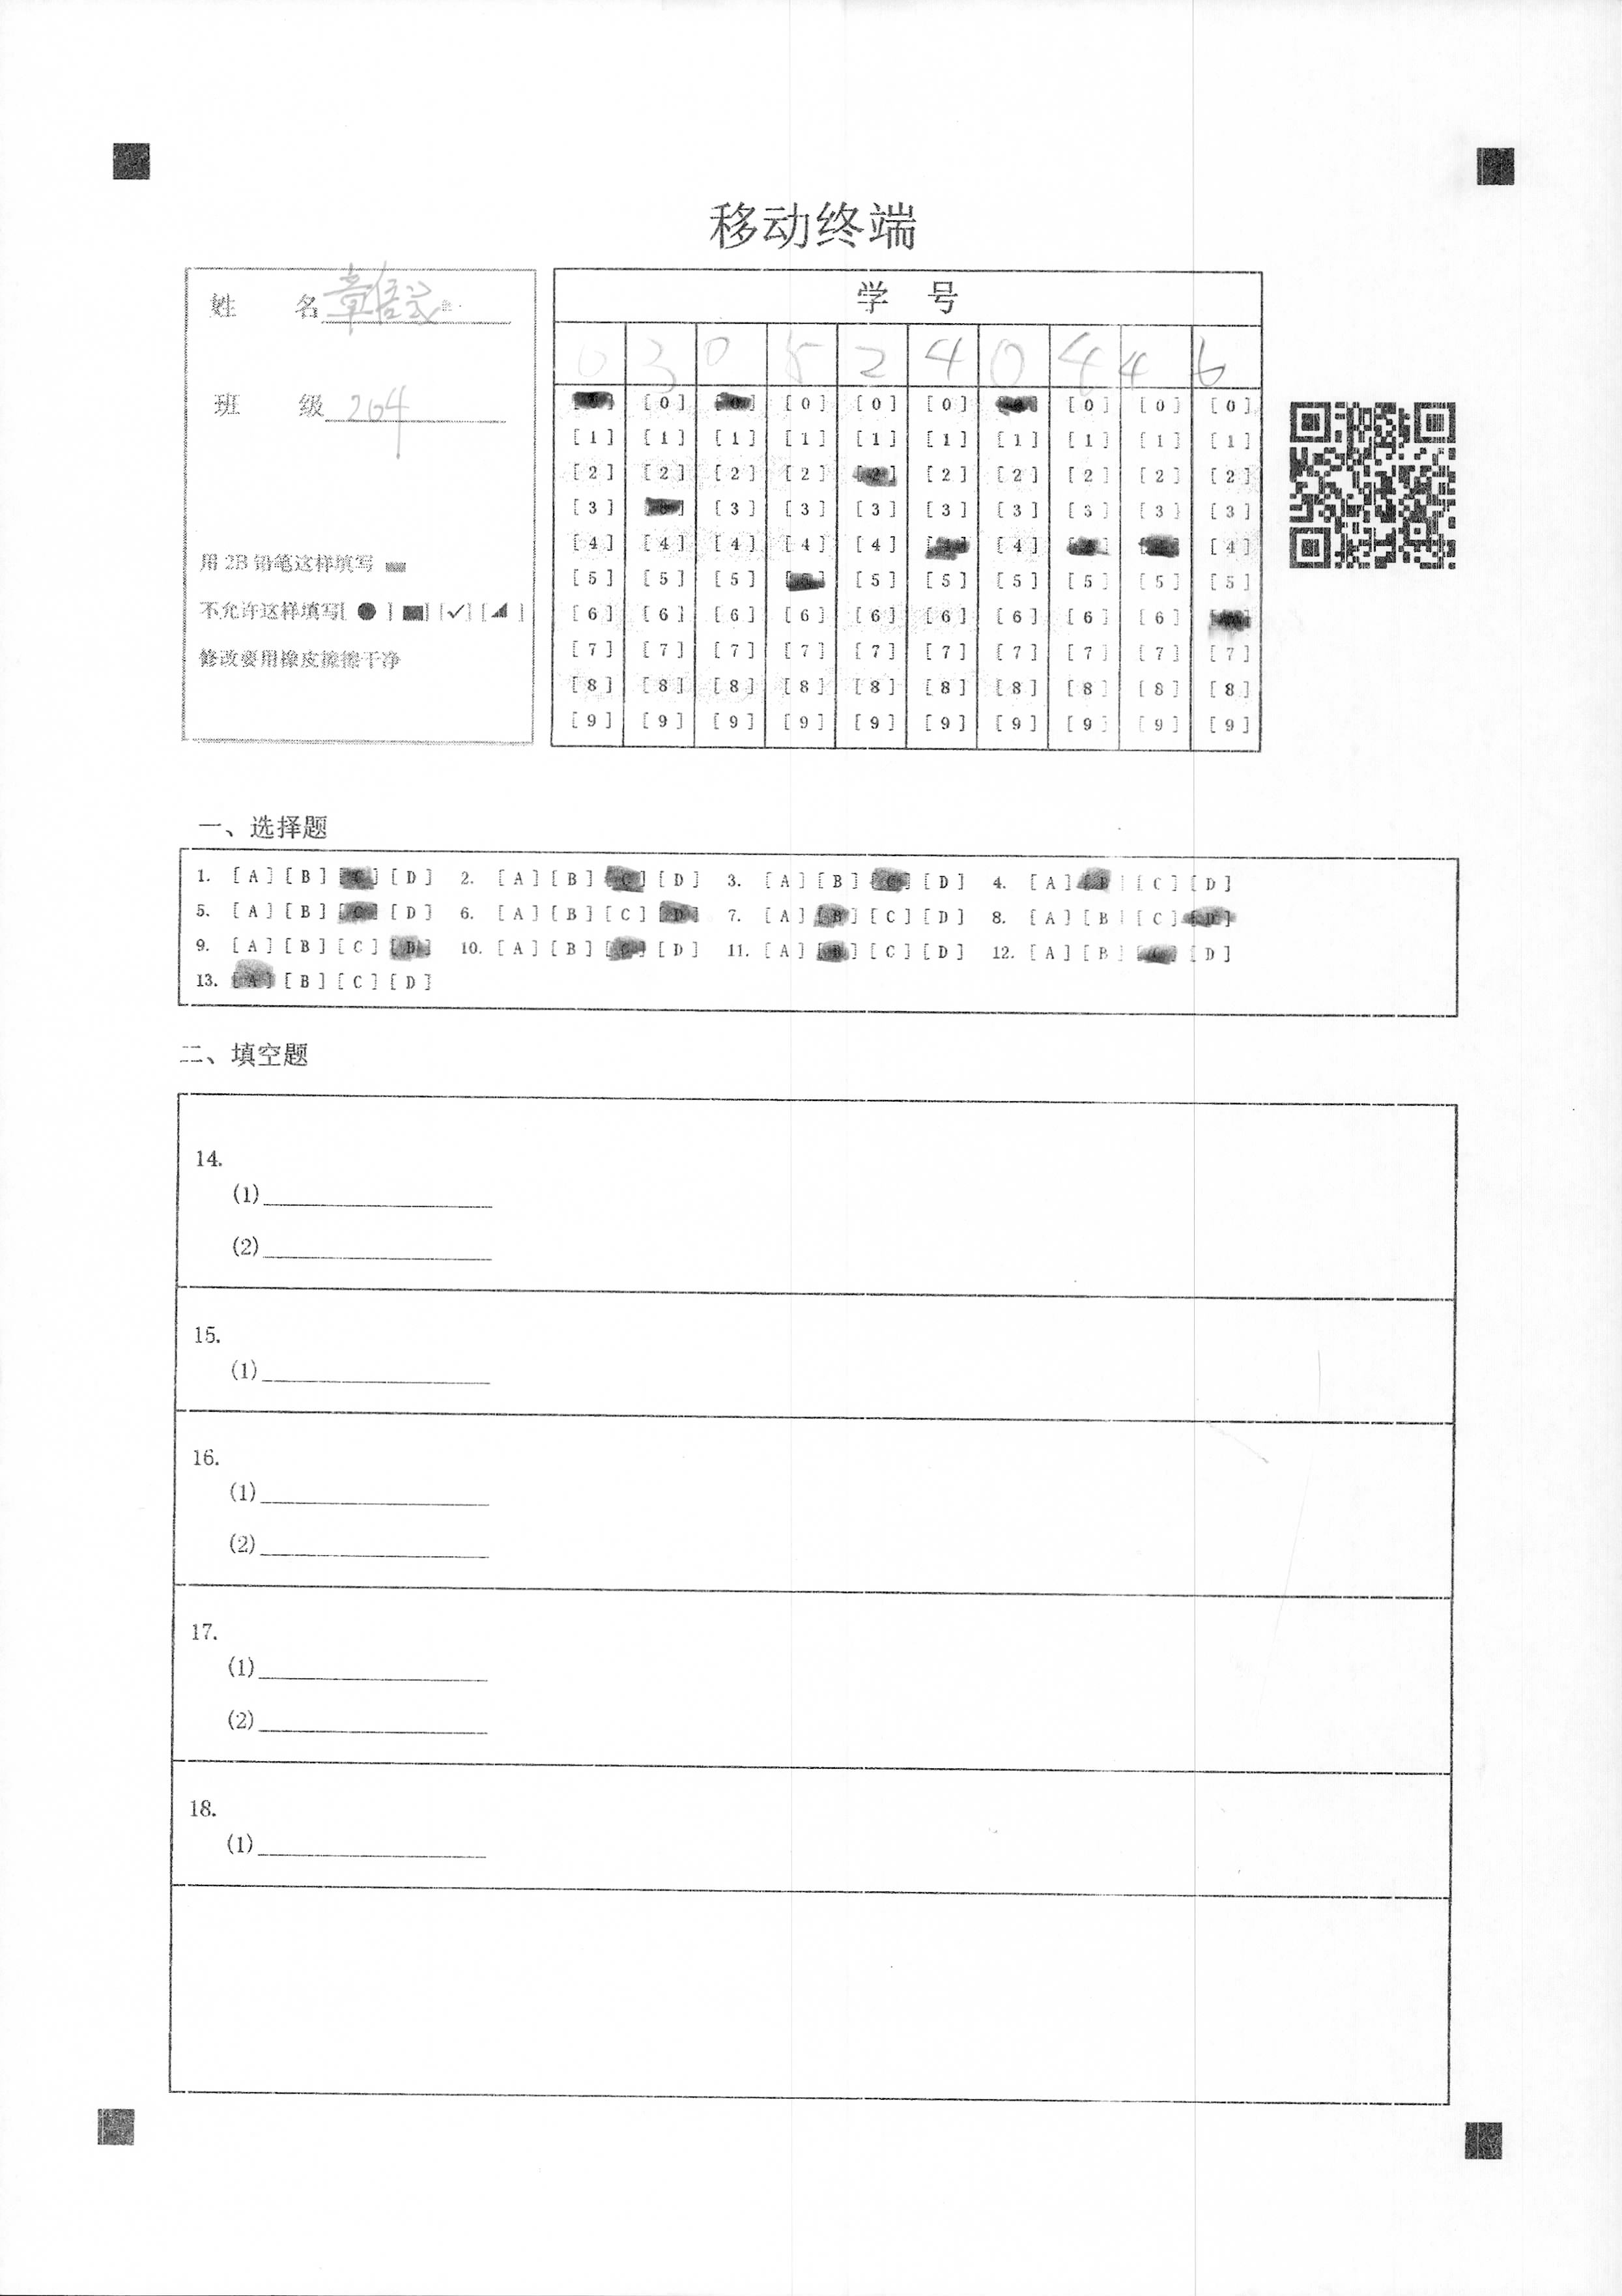 移动终端
姓 名 章
班 级 204
用 2B 铅笔这样填写
不允许这样填写[ ● ] [■] [✓] [◢ ]
修改要用橡皮擦擦干净
学 号
0 3 0 5 2 4 0 4 4 6
[0] [0] [0] [0] [0] [0] [0]
[1] [1] [1] [1] [1] [1] [1] [1] [1] [1]
[2] [2] [2] [2] [2] [2] [2] [2] [2] [2]
[3] [3] [3] [3] [3] [3] [3] [3] [3]
[4] [4] [4] [4] [4] [4] [4]
[5] [5] [5] [5] [5] [5] [5] [5] [5]
[6] [6] [6] [6] [6] [6] [6] [6] [6]
[7] [7] [7] [7] [7] [7] [7] [7] [7] [7]
[8] [8] [8] [8] [8] [8] [8] [8] [8] [8]
[9] [9] [9] [9] [9] [9] [9] [9] [9] [9]
一、选择题
1. [A] [B] [C] [D] 2. [A] [B] [C] [D] 3. [A] [B] [C] [D] 4. [A] [B] [C] [D]
5. [A] [B] [C] [D] 6. [A] [B] [C] [D] 7. [A] [B] [C] [D] 8. [A] [B] [C] [D]
9. [A] [B] [C] [D] 10. [A] [B] [C] [D] 11. [A] [B] [C] [D] 12. [A] [B] [C] [D]
13. [A] [B] [C] [D]
二、填空题
14.
(1)
(2)
15.
(1)
16.
(1)
(2)
17.
(1)
(2)
18.
(1)